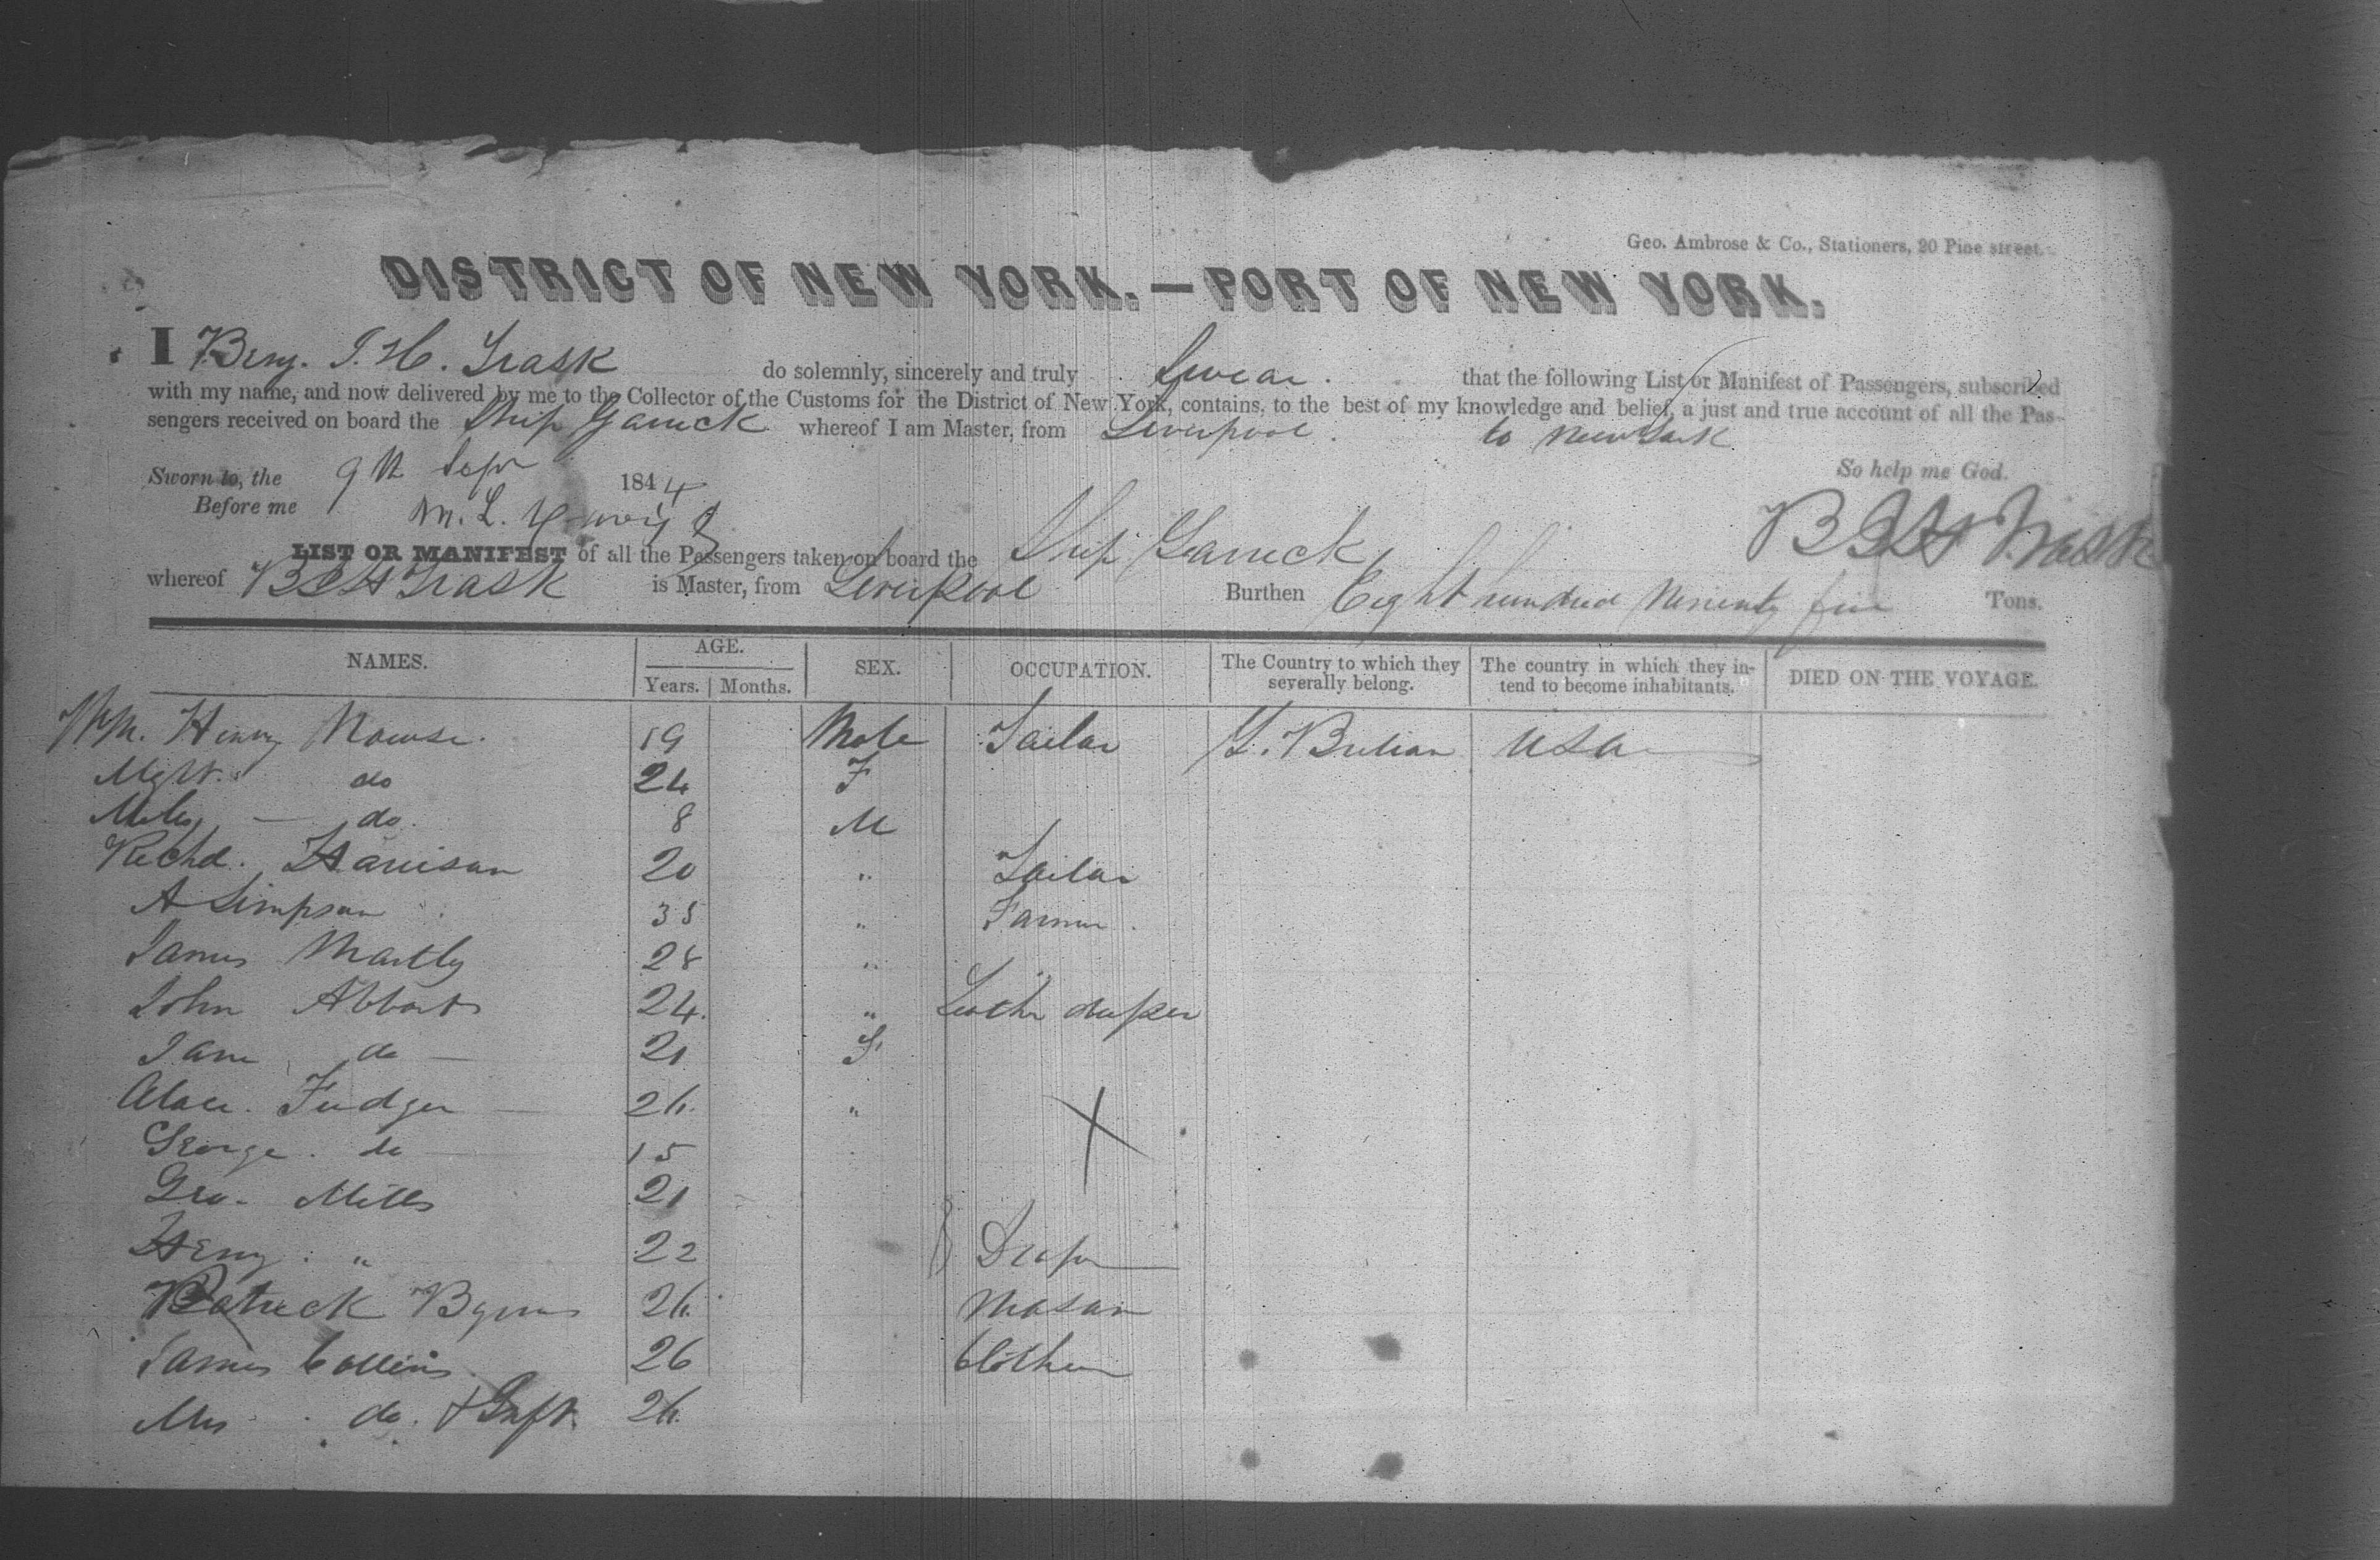 Geo. Ambrose & Co., Stationers, 20 Pine street.
DISTRICT OF NEW YORK.—PORT OF NEW YORK.
I Benj. I. H. Trask do solemnly, sincerely and truly Swear. that the following List or Manifest of Passengers, subscribed
with my name, and now delivered by me to the Collector of the Customs for the District of New York, contains, to the best of my knowledge and belief, a just and true account of all the Pas-
sengers received on board the Ship Garrick whereof I am Master, from Liverpool. to New York
So help me God.
Sworn to, the 9th Sepr 1844
Before me M. L.
B I H Trask
LIST OR MANIFEST of all the Passengers taken on board the Ship Garrick
whereof B I H Trask is Master, from Liverpool Burthen Eight hundred Ninety five Tons.
NAMES. AGE. SEX. OCCUPATION. The Country to which they severally belong. The country in which they in-tend to become inhabitants. DIED ON THE VOYAGE.
Years. Months.
Wm. Henry 19 Male Tailor G. Britain USA
Mgt. do 24 F
do. 8 M
Richd. Harrison 20 " Tailor
A Simpson 35 " Farmer.
James 28 "
John Abbott 24. " draper
Jane do 21 F
26. "
George. do 15
Geo. Mills 21
Henry. " 22 Draper
Patrick Byrns 26. Mason
James Collins 26 Clothier
Mrs do. + Inft. 26.